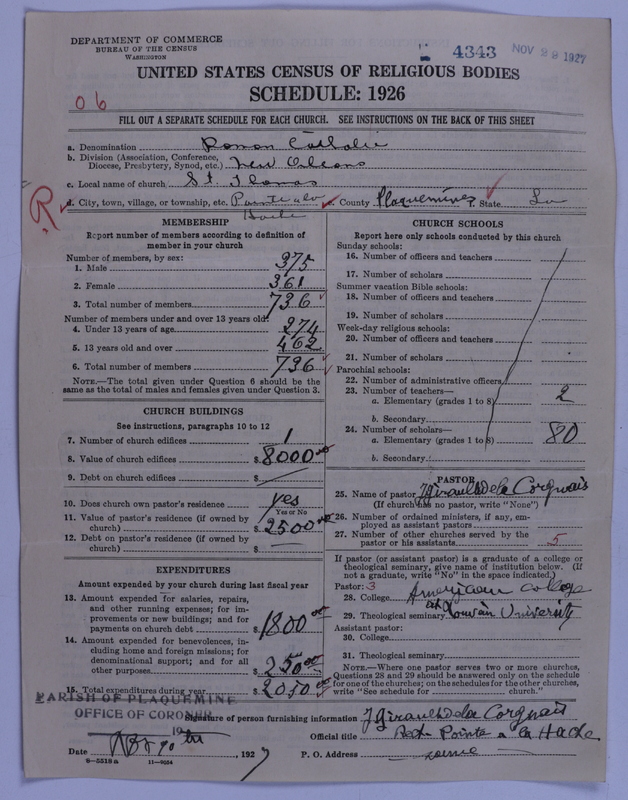 DEPARTMENT OF COMMERCE
BUREAU OF THE CENSUS
WASHINGTON
4343
NOV 28 1927
UNITED STATES CENSUS OF RELIGIOUS BODIES
SCHEDULE: 1926
06
FILL OUT A SEPARATE SCHEDULE FOR EACH CHURCH. SEE INSTRUCTIONS ON THE BACK OF THIS SHEET
a. Denomination Roman Catholic
b. Division (Association, Conference, Diocese, Presbytery, Synod, etc.) New Orleans
c. Local name of church St. Thomas
R
d. City, town, village, or township, etc. Pointe a la Hache e. County Plaquemines State La
MEMBERSHIP
Report number of members according to definition of
member in your church
Number of members, by sex:
1. Male 375
2. Female 361
3. Total number of members 736
Number of members under and over 13 years old:
4. Under 13 years of age 274
5. 13 years old and over 462
6. Total number of members 736
NOTE.—The total given under Question 6 should be the
same as the total of males and females given under Question 3.
CHURCH BUILDINGS
See instructions, paragraphs 10 to 12
7. Number of church edifices 1
8. Value of church edifices $8000.00
9. Debt on church edifices $
10. Does church own pastor's residence? yes
Yes or No
11. Value of pastor's residence (if owned by
church) $2500.00
12. Debt on pastor's residence (if owned by
church) $
EXPENDITURES
Amount expended by your church during last fiscal year
13. Amount expended for salaries, repairs,
and other running expenses; for im-
provements or new buildings; and for
payments on church debt $1800.00
14. Amount expended for benevolences, in-
cluding home and foreign missions; for
denominational support; and for all
other purposes $250.00
15. Total expenditures during year $2050.00
CHURCH SCHOOLS
Report here only schools conducted by this church
Sunday schools:
16. Number of officers and teachers
17. Number of scholars
Summer vacation Bible schools:
18. Number of officers and teachers
19. Number of scholars
Week-day religious schools:
20. Number of officers and teachers
21. Number of scholars
Parochial schools:
22. Number of administrative officers
23. Number of teachers—
a. Elementary (grades 1 to 8) 2
b. Secondary
24. Number of scholars—
a. Elementary (grades 1 to 8) 80
b. Secondary
PASTOR
25. Name of pastor
(If church has no pastor, write "None")
26. Number of ordained ministers, if any, em-
ployed as assistant pastors
27. Number of other churches served by the
pastor or his assistants 5
If pastor (or assistant pastor) is a graduate of a college or
theological seminary, give name of institution below. (If
not a graduate, write "No" in the space indicated.)
Pastor: 3
28. College American College
29. Theological seminary Louvain University
Assistant pastor:
30. College
31. Theological seminary
NOTE.—Where one pastor serves two or more churches,
Questions 28 and 29 should be answered only on the schedule
for one of the churches; on the schedules for the other churches,
write "See schedule for church."
PARISH OF PLAQUEMINE
OFFICE OF CORONER
Signature of person furnishing information
Official title Pointe a la Hache
Date 1927
P. O. Address same
8—5518a 11—9064